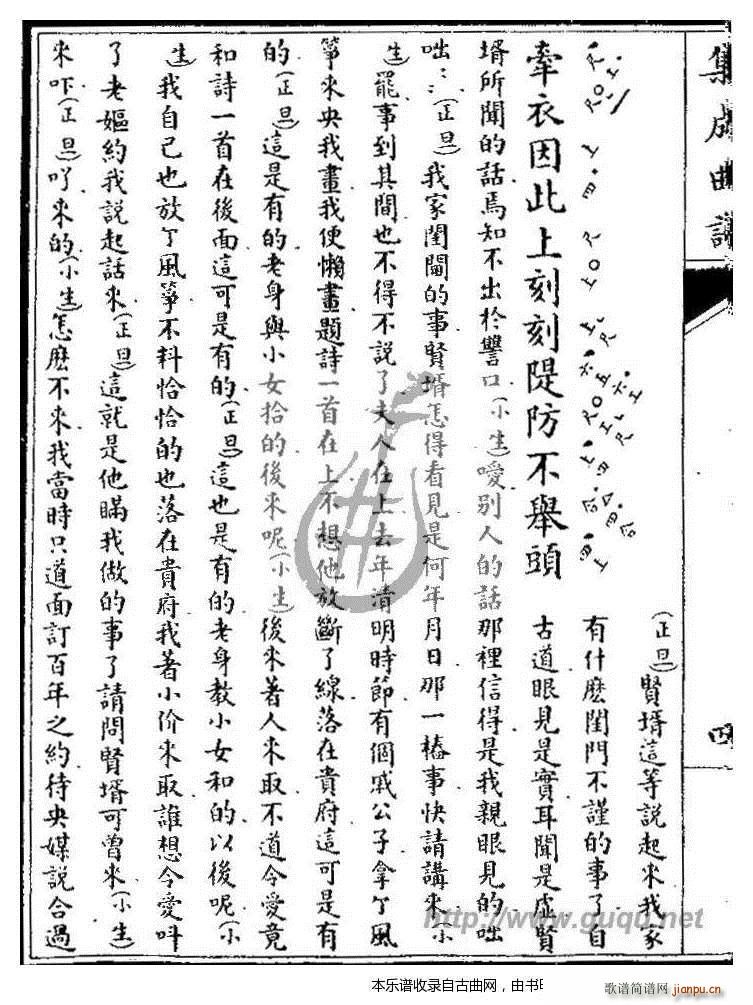 集成曲譜
四
牽衣因此上刻刻隄防不舉頭
(正旦)賢壻這等説起來我家
有什麽閨門不謹的事了自
古道眼見是實耳聞是虛賢
壻所聞的話焉知不出於讐口(小生)噯別人的話那裡信得是我親眼見的咄
咄(正旦)我家閨閫的事賢壻怎得看見是何年月日那一樁事快請講來(小
生)罷事到其間也不得不説了夫人在上去年清明時節有個戚公子拿了風
箏來央我畫我便懶畫題詩一首在上不想他放斷了線落在貴府這可是有
的(正旦)這是有的老身與小女拾的後來呢(小生)後來着人來取不道令愛竟
和詩一首在後面這可是有的(正旦)這也是有的老身教小女和的以後呢(小
生)我自己也放了風箏不料恰恰的也落在貴府我著小价來取誰想令愛叫
了老嫗約我説起話來(正旦)這就是他瞞我做的事了請問賢壻可曾來(小生)
來吓(正旦)吖來的(小生)怎麽不來我當時只道面訂百年之約待央媒説合過
http://www.guqu.net
本乐谱收录自古曲网，由书
歌谱简谱网
jianpu.cn